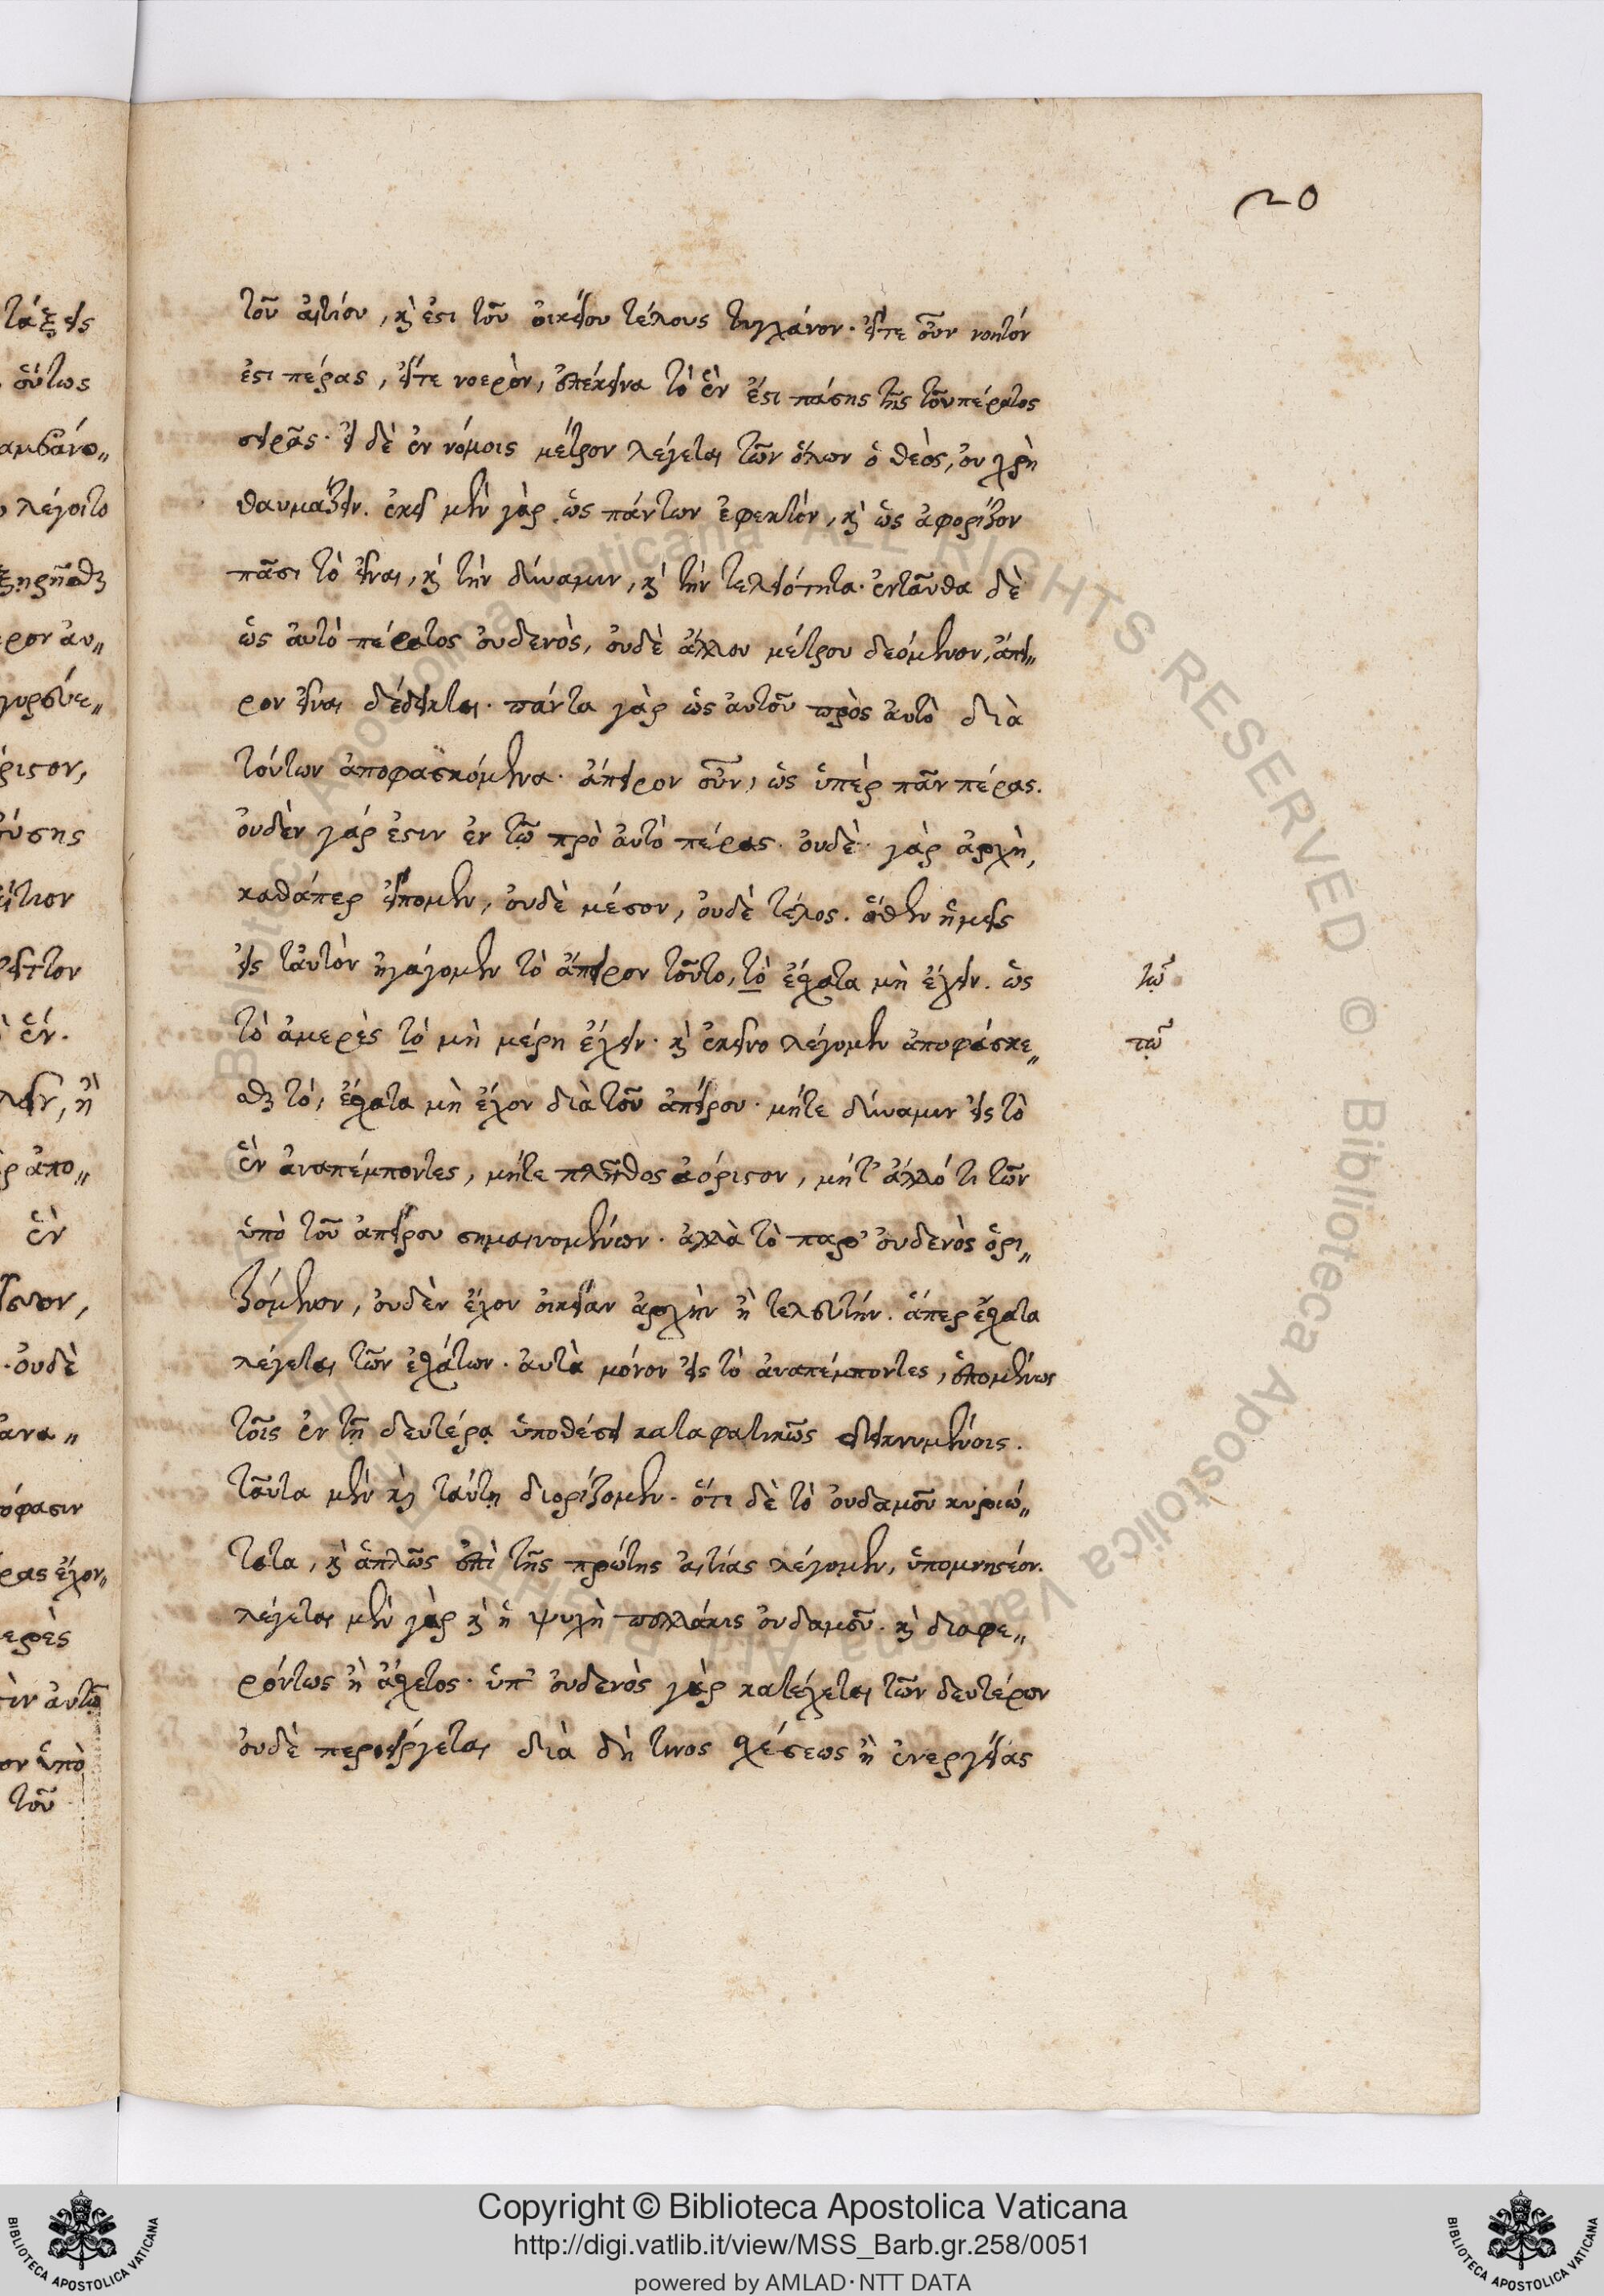 20
τοῦ αἰτίου, κὴ ἐστὶ τοῦ οἰκείου τέλους τυγχάνον. εἴτε οὖν νοητόν
ἐστι πέρας, εἴτε νοερὸν, ἐπέκεινα τὸ ἓν ἐστι πάσης τῆς τοῦ πέρατος
σειρᾶς. εἰ δὲ ἐν νόμοις μέτρον λέγεται τῶν ὅλων ὁ θεὸς, οὐ χρὴ
θαυμάζειν. ἐκεῖ μὲν γὰρ ὡς πάντων ἐφεκτόν, κὴ ὡς ἀφορίζον
πᾶσι τὸ εἶναι, κὴ τὴν δύναμιν, κὴ τὴν τελειότητα. ἐνταῦθα δὲ
ὡς αὐτὸ πέρατος οὐδενὸς, οὐδὲ ἄλλου μέτρου δεόμενον, ἄπει〃
ρον εἶναι δέδεικται. πάντα γὰρ ὡς αὐτοῦ πρὸς αὐτὸ διὰ
τούτων ἀποφασκόμενα. ἄπειρον οὖν, ὡς ὑπὲρ πᾶν πέρας.
οὐδὲν γάρ ἐστιν ἐν τῷ πρὸ αὐτὸ πέρας. οὐδὲ γὰρ ἀρχὴ,
καθάπερ εἴπομεν, οὐδὲ μέσον, οὐδὲ τέλος. ὅθεν ἡμεῖς
εἰς ταὐτὸν ἠγάγομεν τὸ ἄπειρον τοῦτο, τὸ ἔσχατα μὴ ἔχειν. ὡς
τῷ
τὸ ἀμερὲς τὸ μὴ μέρη ἔχειν. κὴ ἐκεῖνο λέγομεν ἀποφάσκε〃
τῷ
σθαι τό, ἔσχατα μὴ ἔχον διὰ τοῦ ἀπείρου. μήτε δύναμιν εἰς τὸ
ἓν ἀναπέμποντες, μήτε πλῆθος ἀόριστον, μήτ' ἀλλό τι τῶν
ὑπὸ τοῦ ἀπείρου σημαινομένων. ἀλλὰ τὸ παρ' οὐδενὸς ὁρι〃
ζόμενον, οὐδὲν ἔχον οἰκείαν ἀρχὴν ἢ τελευτήν. ἅπερ ἔσχατα
λέγεται τῶν ἐσχάτων. αὐτὰ μόνον εἰς τὸ ἀναπέμποντες, ἑπομένως
τοῖς ἐν τῇ δευτέρᾳ ὑποθέσει καταφατικῶς δεικνυμένοις.
ταῦτα μὲν κὴ ταύτῃ διορίζομεν. ὅτι δὲ τὸ οὐδαμοῦ κυριώ〃
τατα, κὴ ἁπλῶς ἐπὶ τῆς πρώτης αἰτίας λέγομεν, ὑπομνηστέον.
λέγεται μὲν γὰρ κὴ ἡ ψυχὴ πολλάκις οὐδαμοῦ. κὴ διαφε〃
ρόντως ἡ ἄσχετος. ὑπ' οὐδενὸς γὰρ κατέχεται τῶν δευτέρων
οὐδὲ περιείργεται διὰ δή τινος σχέσεως ἢ ἐνεργείας
Copyright © Biblioteca Apostolica Vaticana
http://digi.vatlib.it/view/MSS_Barb.gr.258/0051
powered by AMLAD·NTT DATA